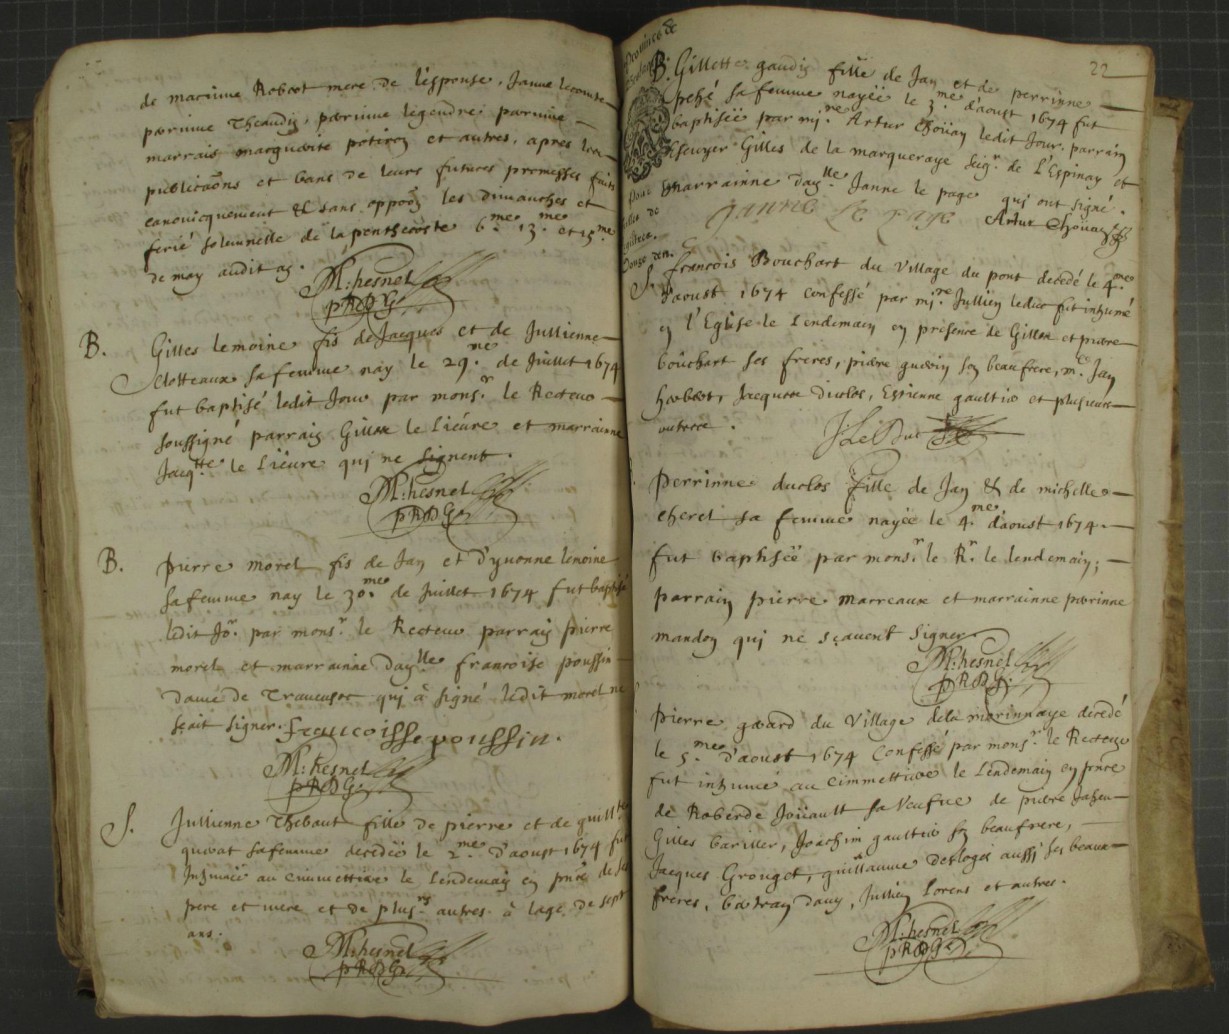 de maxime Robert mere de l'espouse, Janne lecomte
perinne Theaudin, perinne legendre perinne
marrais margueritte potiron et autres, apres les
publicaõns et bans de leurs futures promesses faits
canonicquement & sans oppoõn les dimanches et
ferie solemnelle de la penthecoste 6.me 13.me et 15.me
de may audit an.
M: hesnel
PRDG
B. Gilles lemoine fis de Jacques et de Jullienne
clotteaux sa femme nay le 29.me de Juillet 1674
fut baptisé ledit Jour par mons.r le Recteur
soussigné parrain Gilles le Lieure et marrainne
Jacq.tte le Lieure qui ne signent.
M: hesnel
PRDG
B. pierre morel fis de Jan et d'yvonne lemoine
sa femme nay le 30.me de Juillet 1674 fut baptisé
ledit Jo.r par mons.r le Recteur parrain pierre
morel et marrainne Day.lle francoise poussin
dame de qui à signé ledit morel ne
sçait signer. francoisse poussin.
M: hesnel
PRDG
S. Jullienne Thebaut fille de pierre et de guill.tte
sa femme decedeë le 2.me d'aoust 1674 fut
Inhumeë au cimmettiere le Lendemain en pñce de ses
pere et mere et de plus.rs autres à lage de sept
ans.
M: hesnel
PRDG
22
B. Gillette gaudin fille de Jan et de perrinne
sa femme nayeë le 3.me d'aoust 1674 fut
baptiseë par mi.re Artur Choüan ledit Jour. parrain
Escuyer Gilles de la marqueraye Sieg.r de L'Espinay et
marrainne day.lle Janne le page qui ont signé.
Janne Le Page Artur Choüan
S. francois Bouchart du village du pont decedé le 4.me
d'aoust 1674 confessé par mi.re Jullien leduc fut inhumé
en l'Eglise le Lendemain en presence de Gilles et pierre
bouchart ses freres, pierre guerin son beaufrere, m.re Jan
herbert, Jacques duclos, Estienne gaultier et plusieurs
autres.
J: Le Duc
perrinne duclos fille de Jan & de michelle
cherel sa femme nayeë le 4.me d'aoust 1674
fut baptiseë par mons.r le R.r le lendemain;
parrain pierre marreaux et marrainne perinne
mandon qui ne sçavent signer
M: hesnel
PRDG
pierre gerard du village dela morinnaye decedé
le 5.me d'aoust 1674 Confessé par mons.r le Recteur
fut inhumé au Cimmettiere le Lendemain en pñce
de Roberde Joüault sa veufve de pierre
Gilles barillier, Joachim gaultier son beaufrere,
Jacques Grouget, guillaume Desloges aussi ses beaux
freres, bertran davy, Jullien Lorens et autres.
M: hesnel
PRDG